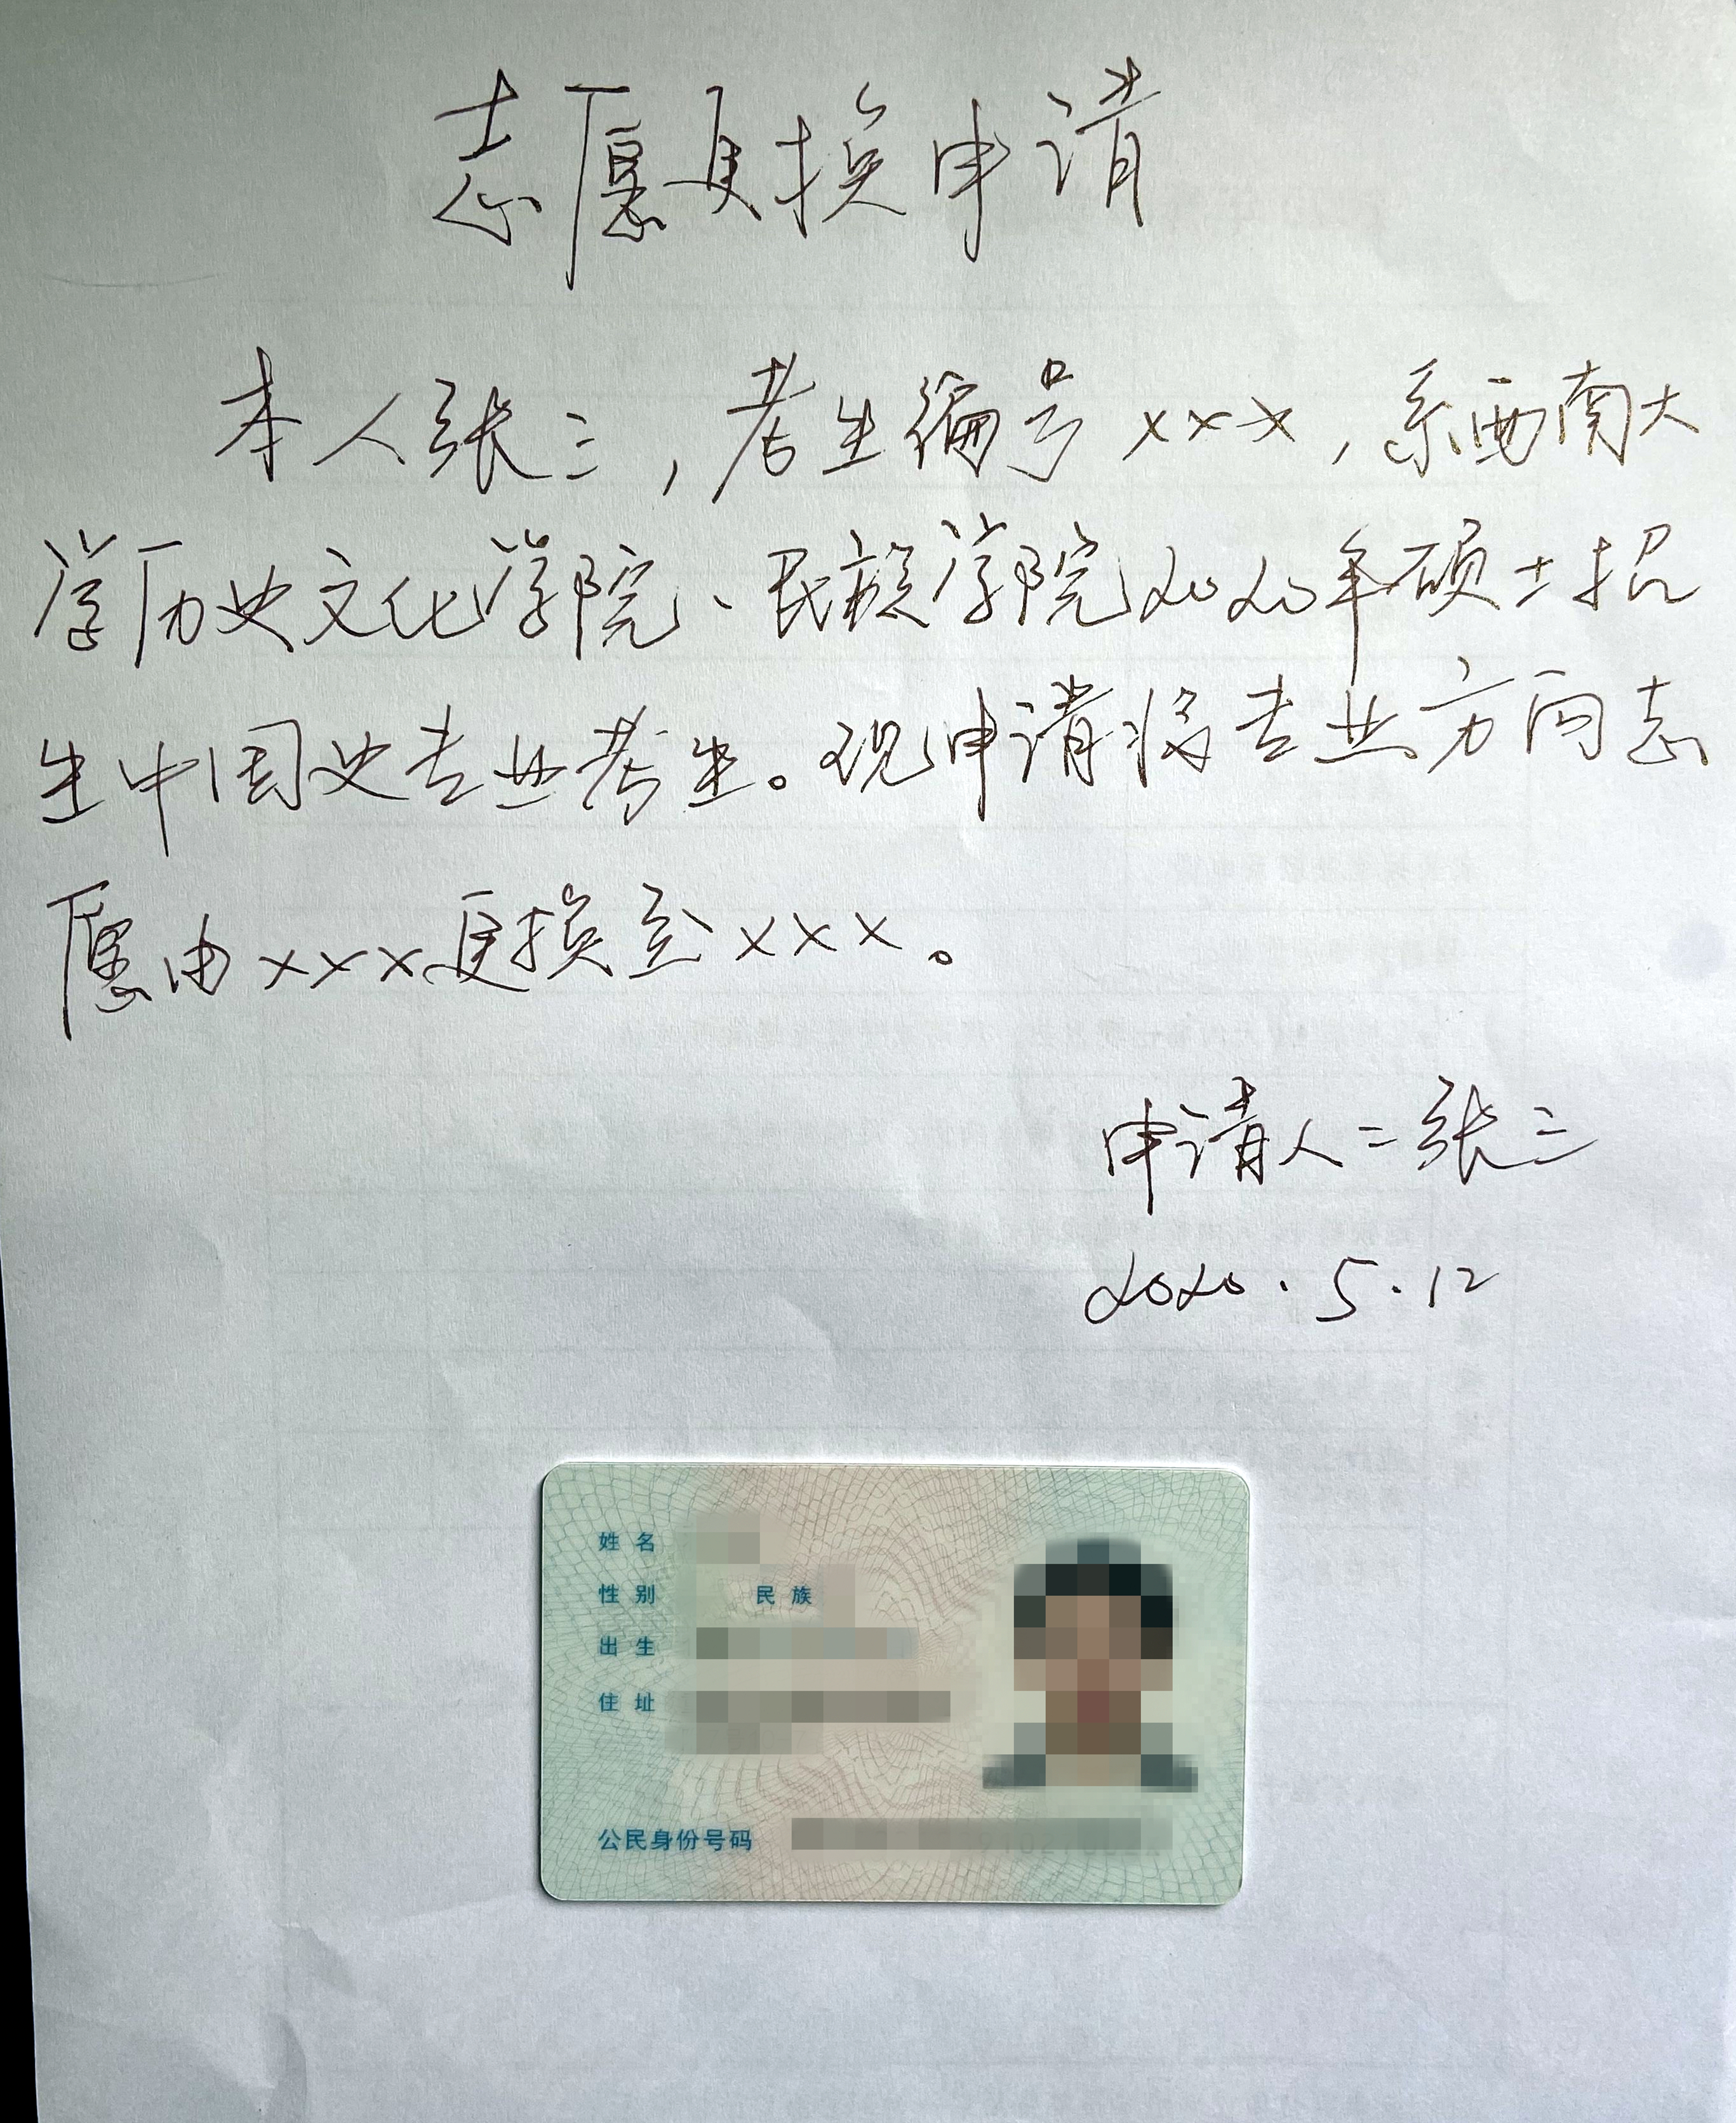 志愿更换申请
本人张三，考生编号×××，系西南大
学历史文化学院、民族学院2020年硕士招
生中国史专业考生。现申请将专业方向志
愿由×××更换至×××。
申请人：张三
2020.5.12
姓名
性别 民族
出生
住址
公民身份号码